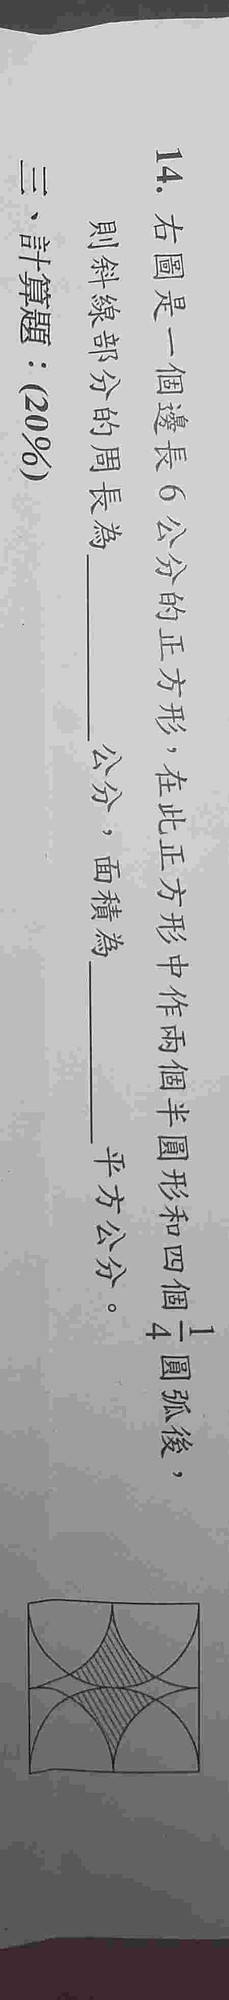 14. 右圖是一個邊長6公分的正方形，在此正方形中作兩個半圓形和四個1/4圓弧後，
則斜線部分的周長為______公分，面積為______平方公分。
三、計算題：(20%)